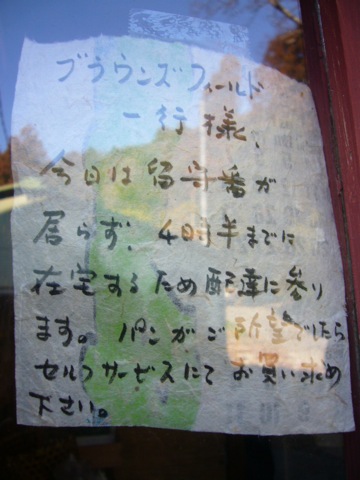 ブラウンズフィールド
一行様、
今日は留守番が
居らず、4時半までに
在宅するため配達に参り
ます。パンがご所望でしたら
セルフサービスにてお買い求め
下さい。